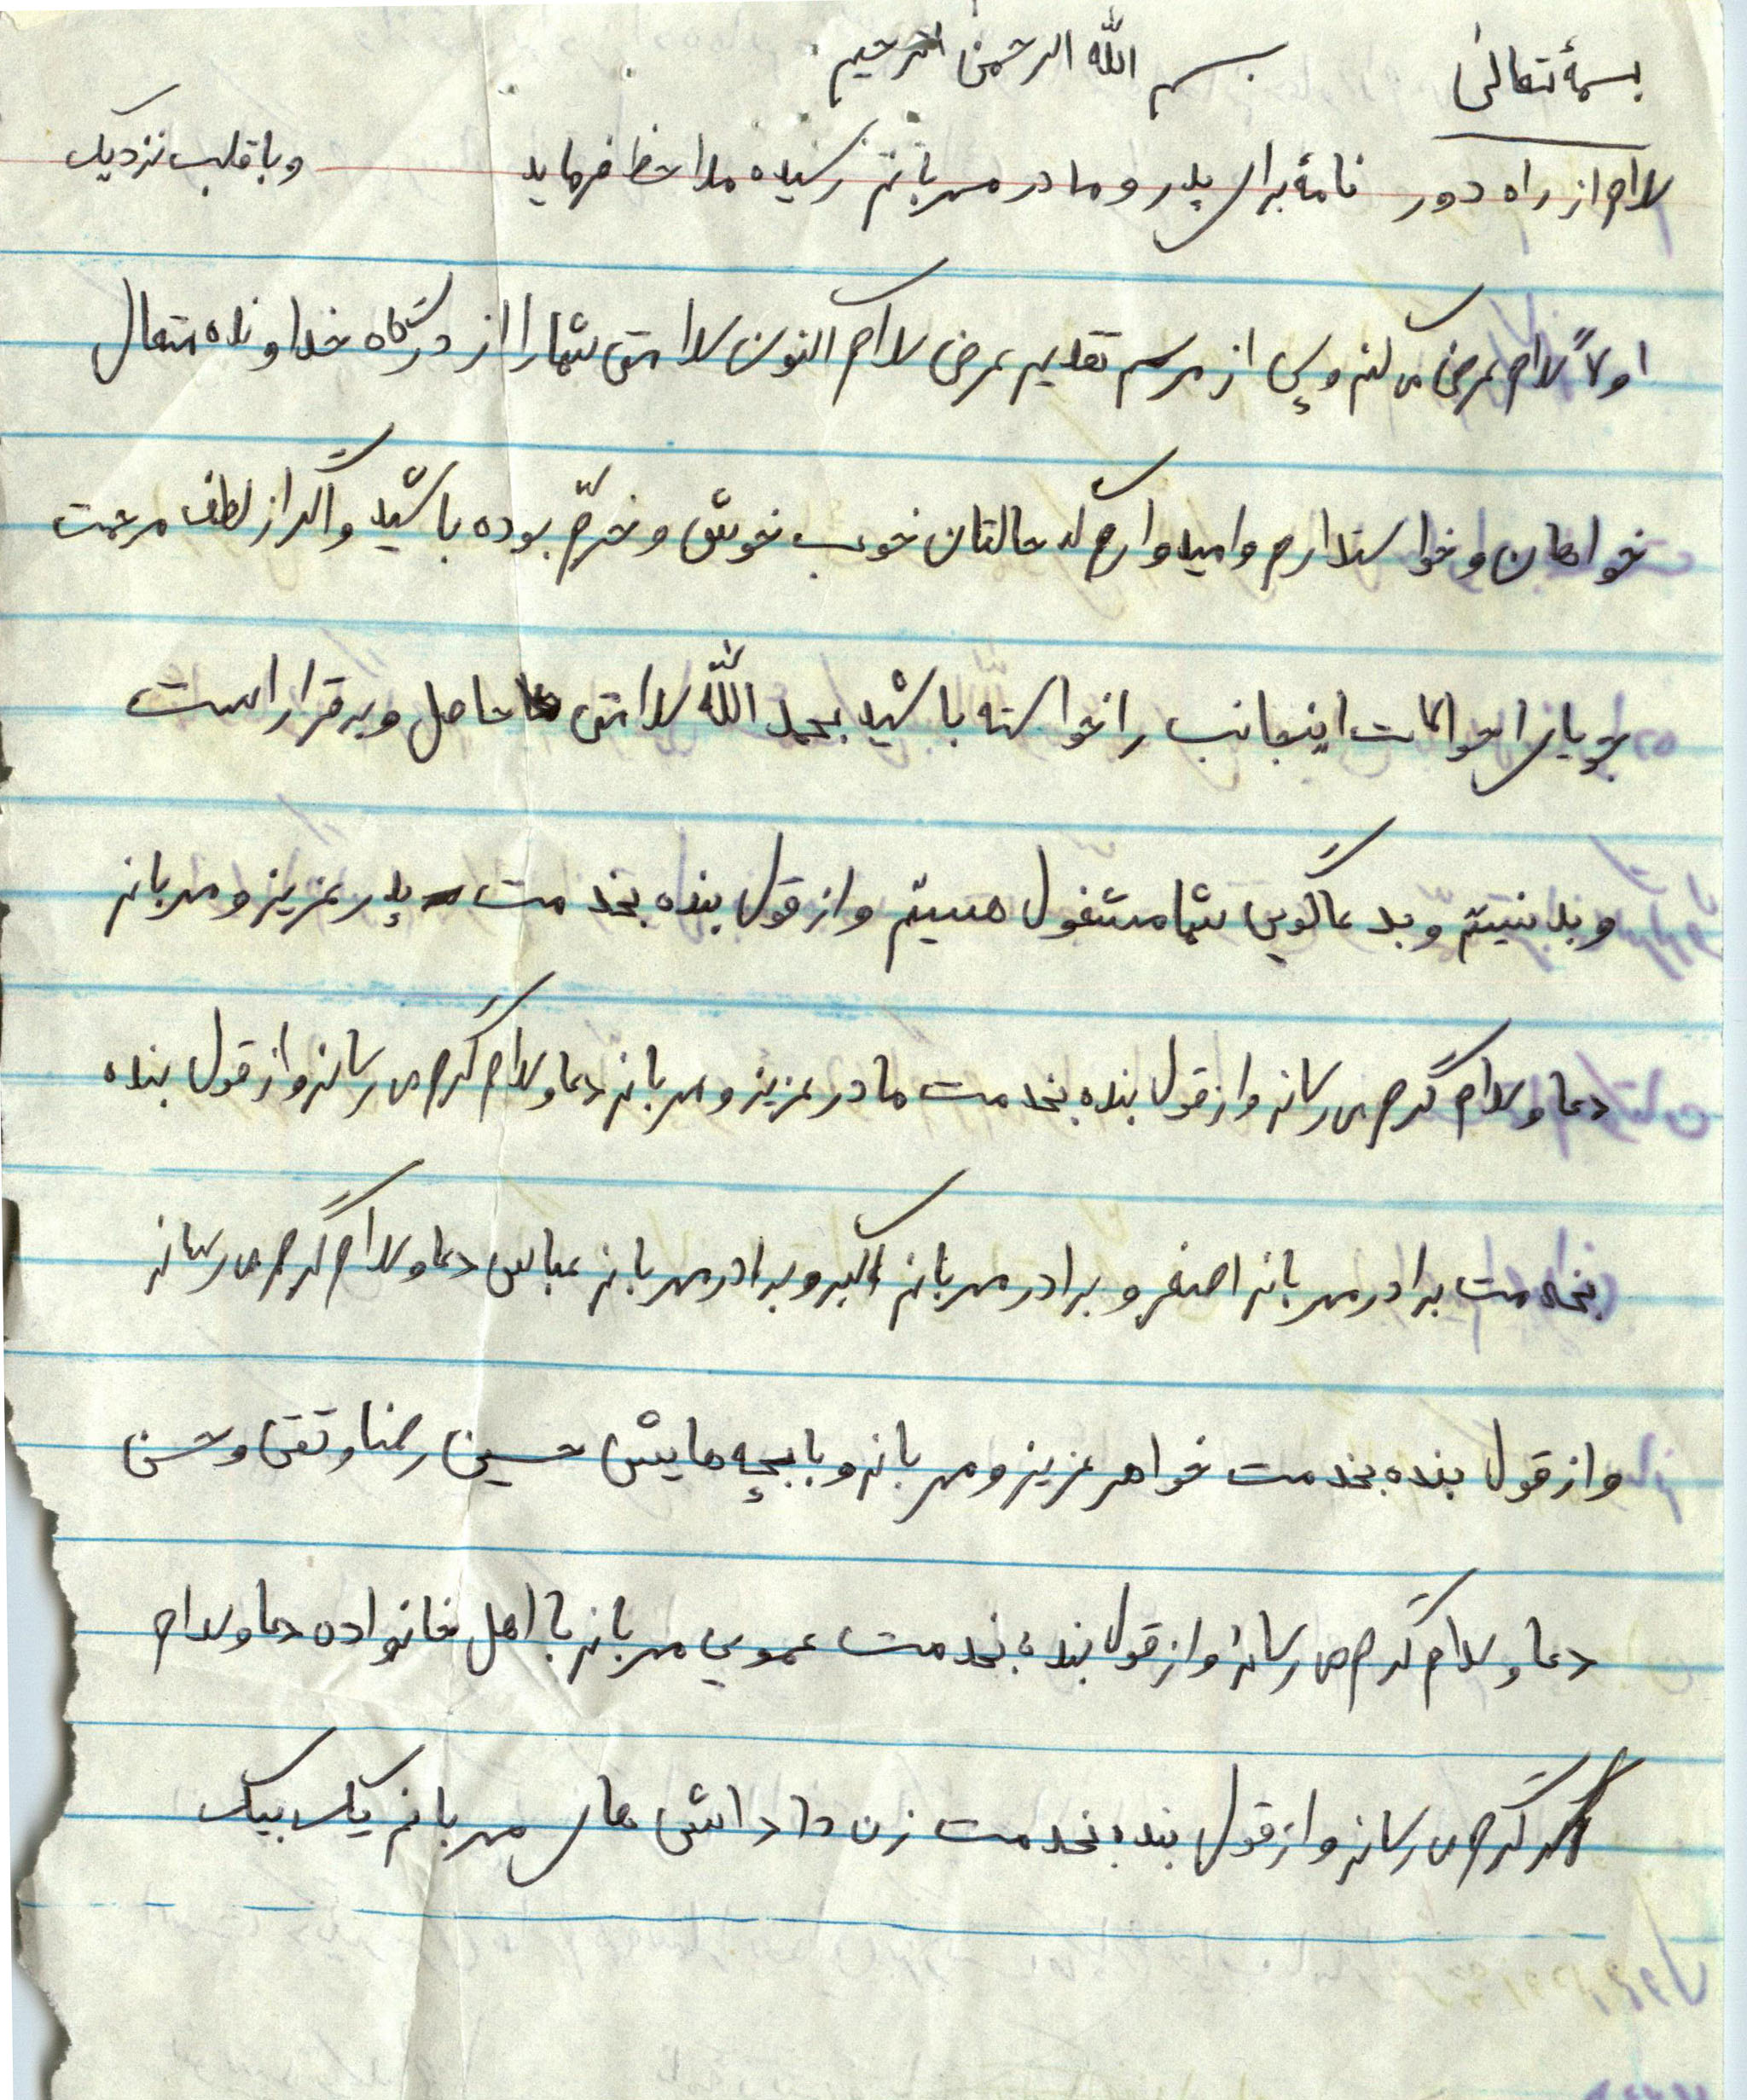 بسمهٔ تعالی بسم الله الرحمن الرحیم
سلام از راه دور نامهٔ برای پدر و مادر مهربانم رسیده ملاحظ فرماید و با قلب نزدیک
اولاً سلام عرض می کنم و پس از مرسم تقدیم عرض سلام اکنون سلامتی شما را از درگاه خداونده متعال
خواهان و خواستدارم و امیدوارم که حالتان خوب خوش و خرّم بوده باشید و اگر از لطف مرحمت
جویای احوالات اینجانب را خواسته باشید بحمد الله سلامتی حاصل و برقرار است
و بد نیستم و بدعاگویی شما مشغول هستیم و از قول بنده بخدمت پدر عزیز و مهربانم
دعا و سلام گرم می رسانم و از قول بنده بخدمت مادر عزیز و مهربانم دعا و سلام گرم می رسانم و از قول بنده
بخدمت برادر مهربانم اصغر و برادر مهربانم اکبر و برادر مهربانم عباس دعا و سلام گرم می رسانم
و از قول بنده بخدمت خواهر عزیز و مهربانم و با بچه هایش حسین رضا و تقی و حسن
دعا و سلام گرم می رسانم و از قول بنده بخدمت عموی مهربانم با اهل خانواده دعا و سلام
گرم می رسانم و از قول بنده بخدمت زن داداش های مهربانم یک بیک